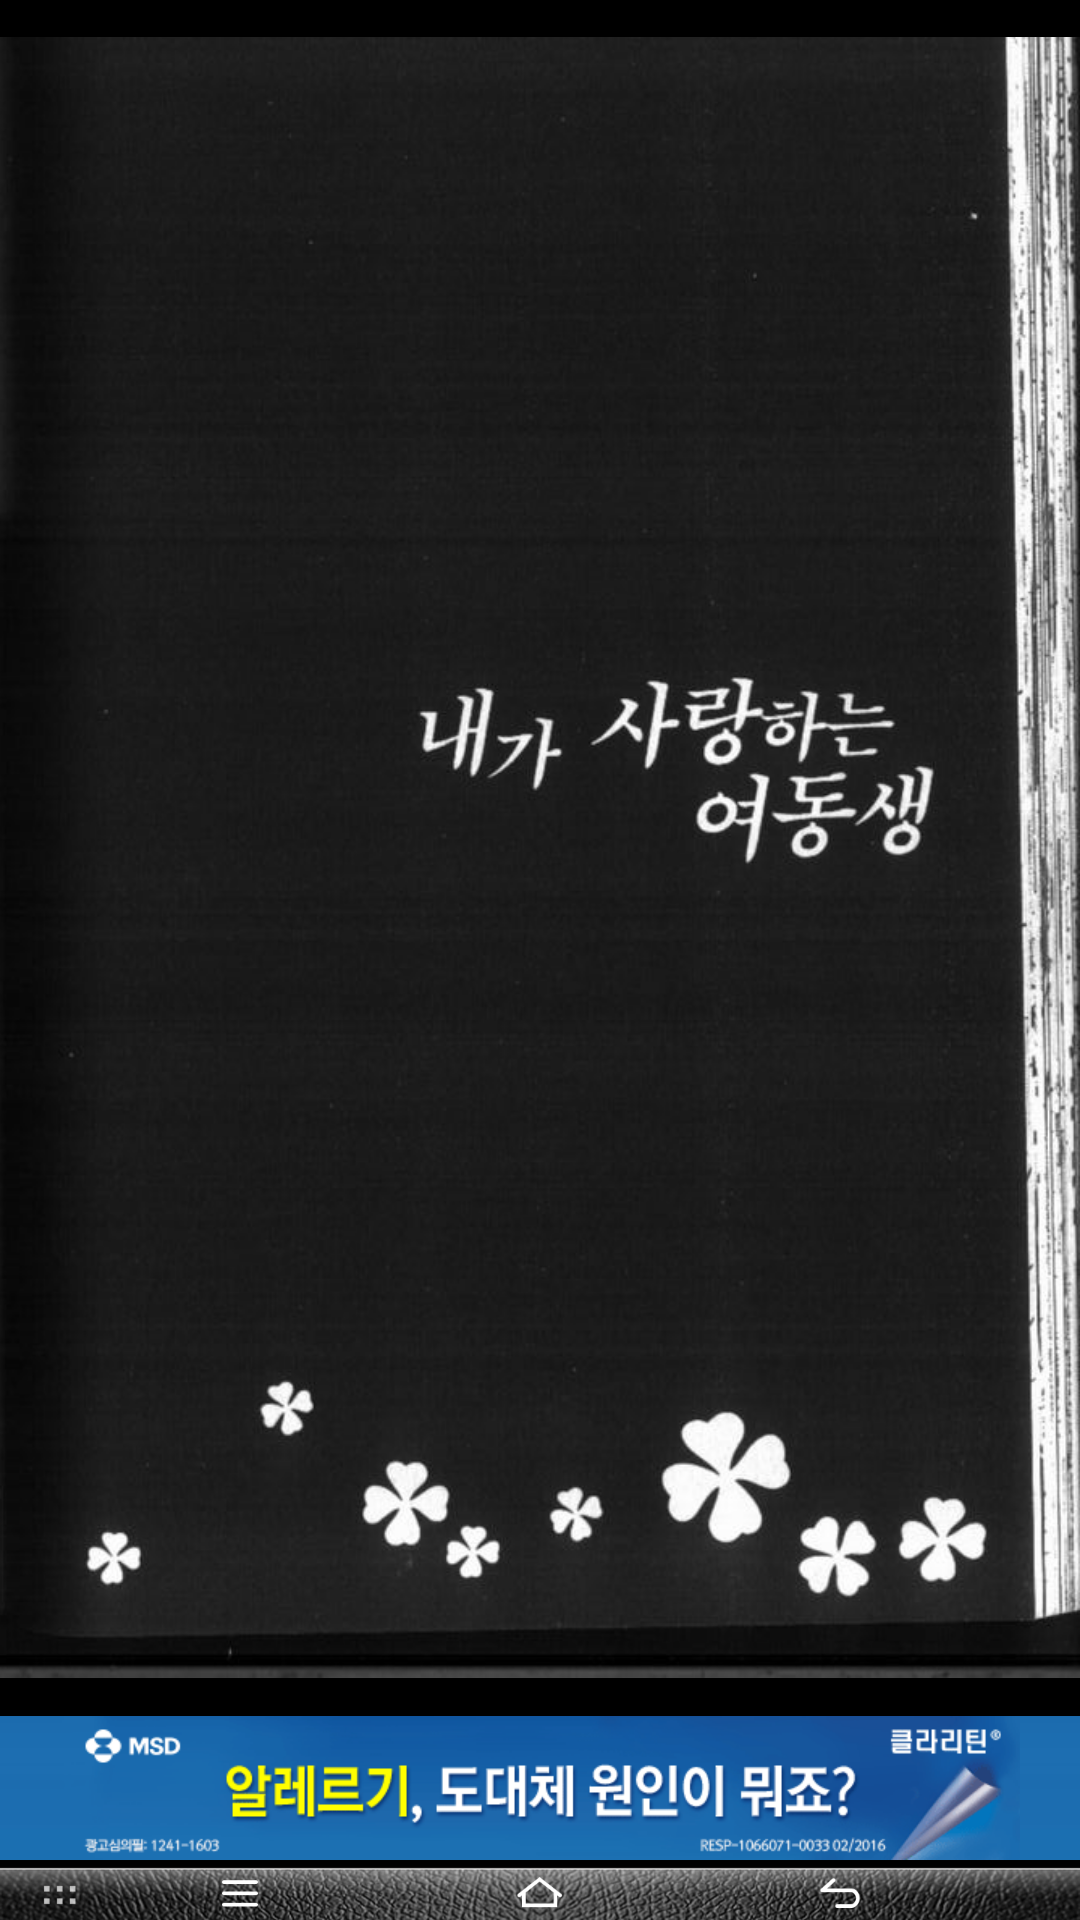 내가 사랑하는
여동생
MSD
클라리틴®
알레르기, 도대체 원인이 뭐죠?
광고심의필: 1241-1603
RESP-1066071-0033 02/2016